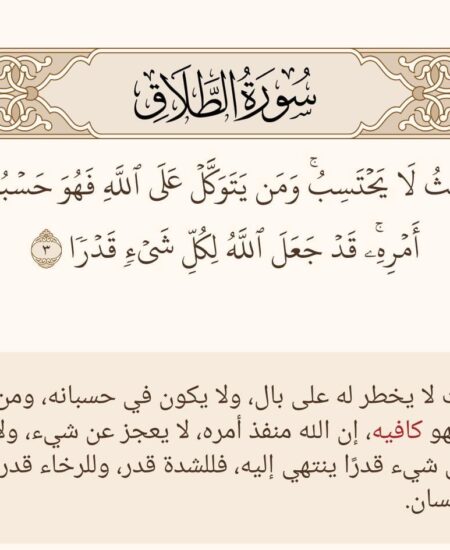 سُورَةُ الطَّلَاقِ
لَا يَحْتَسِبُ ۚ وَمَن يَتَوَكَّلْ عَلَى ٱللَّهِ فَهُوَ
أَمْرِهِۦ ۚ قَدْ جَعَلَ ٱللَّهُ لِكُلِّ شَىْءٍ قَدْرًا ٣
لا يخطر له على بال، ولا يكون في حسبانه، ومن
كافيه، إن الله منفذ أمره، لا يعجز عن شيء،
شيء قدرًا ينتهي إليه، فللشدة قدر، وللرخاء